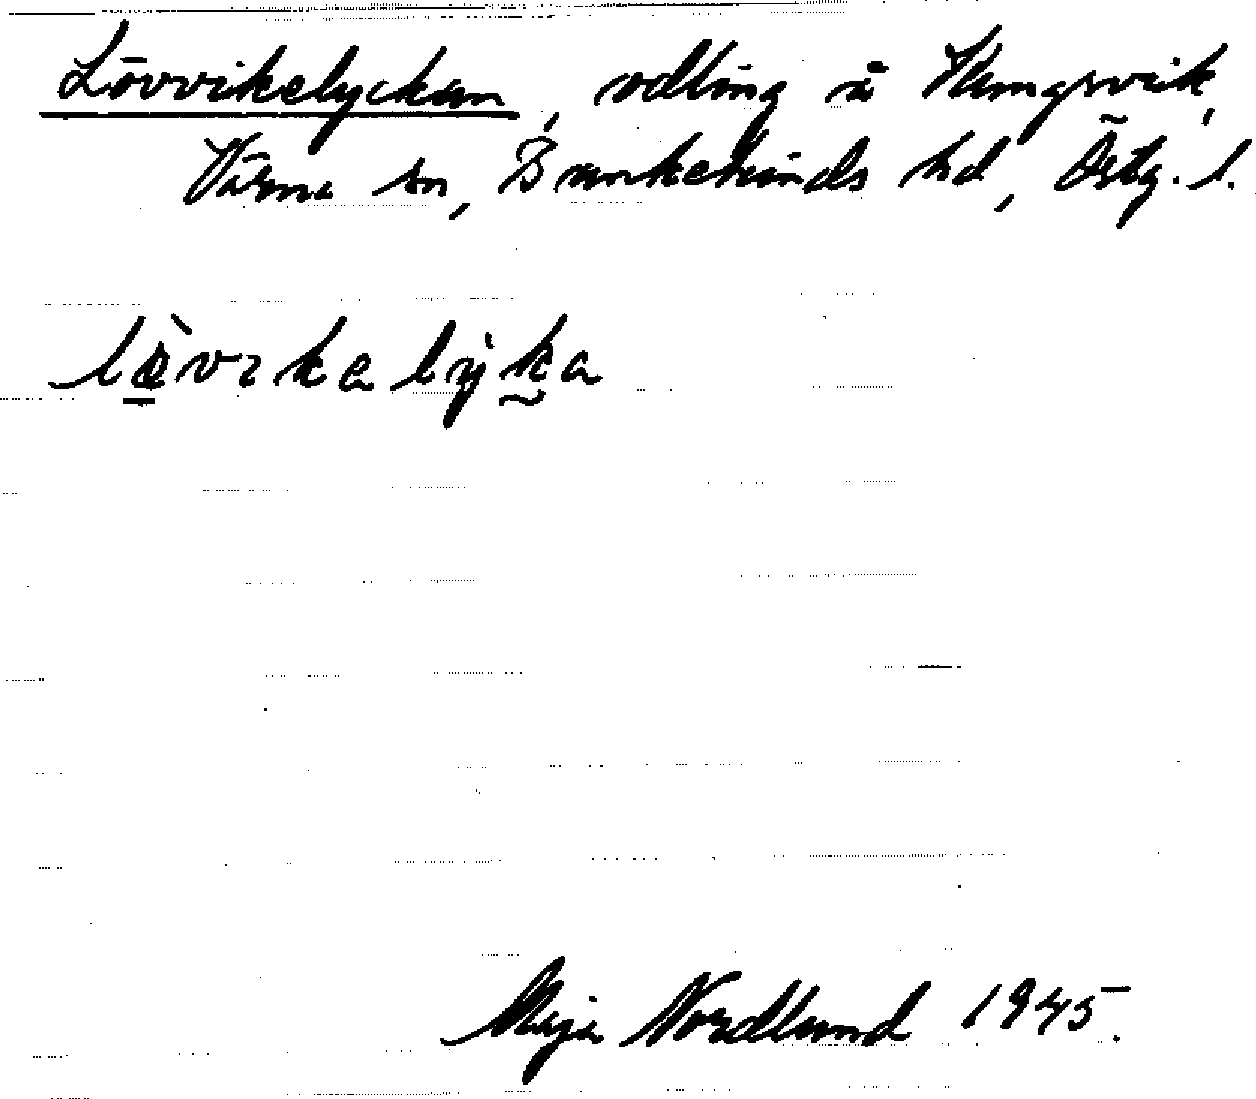 Lövvikelyckan, odling å Hemgsvik,
Värna sn, Bankekinds hd, Östg. l.
lø̀vɩkalỳka
Maja Nordlund 1945.